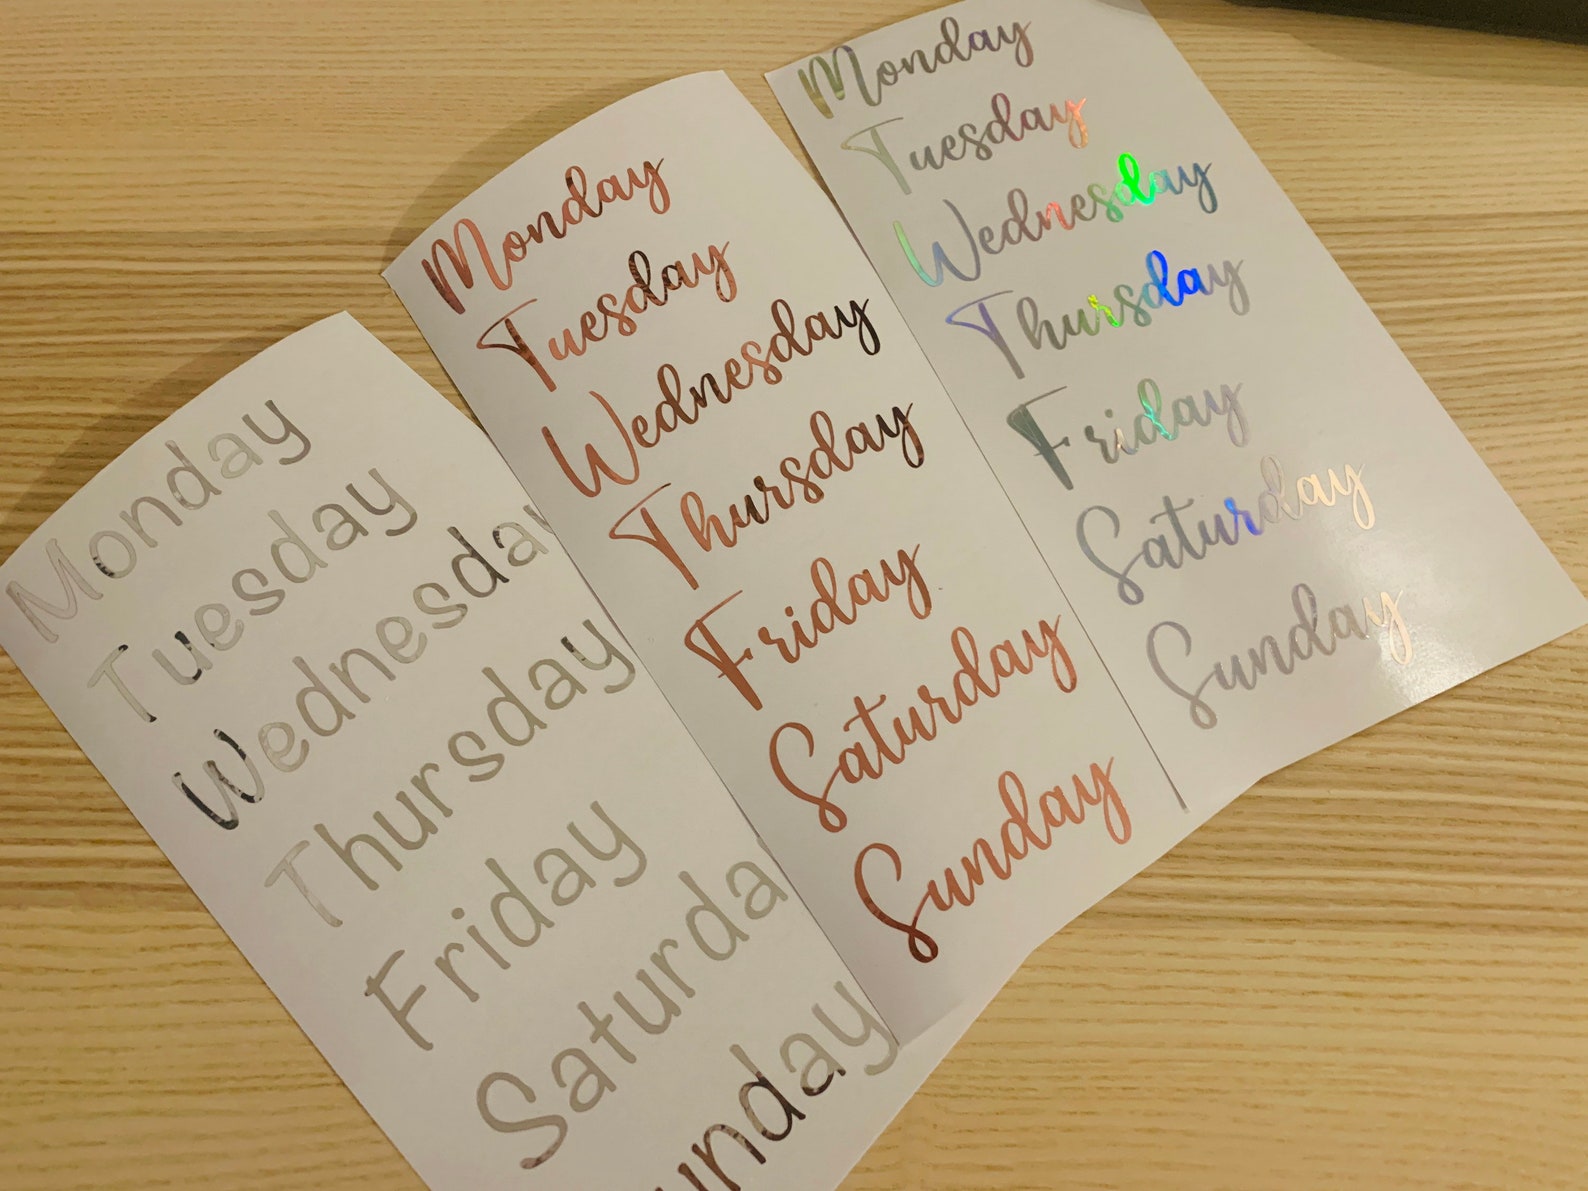 Monday
Tuesday
Wednesday
Thursday
Friday
Saturday
unday
Monday
Tuesday
Wednesday
Thursday
Friday
Saturday
Sunday
Monday
Tuesday
Wednesday
Thursday
Friday
Saturday
Sunday